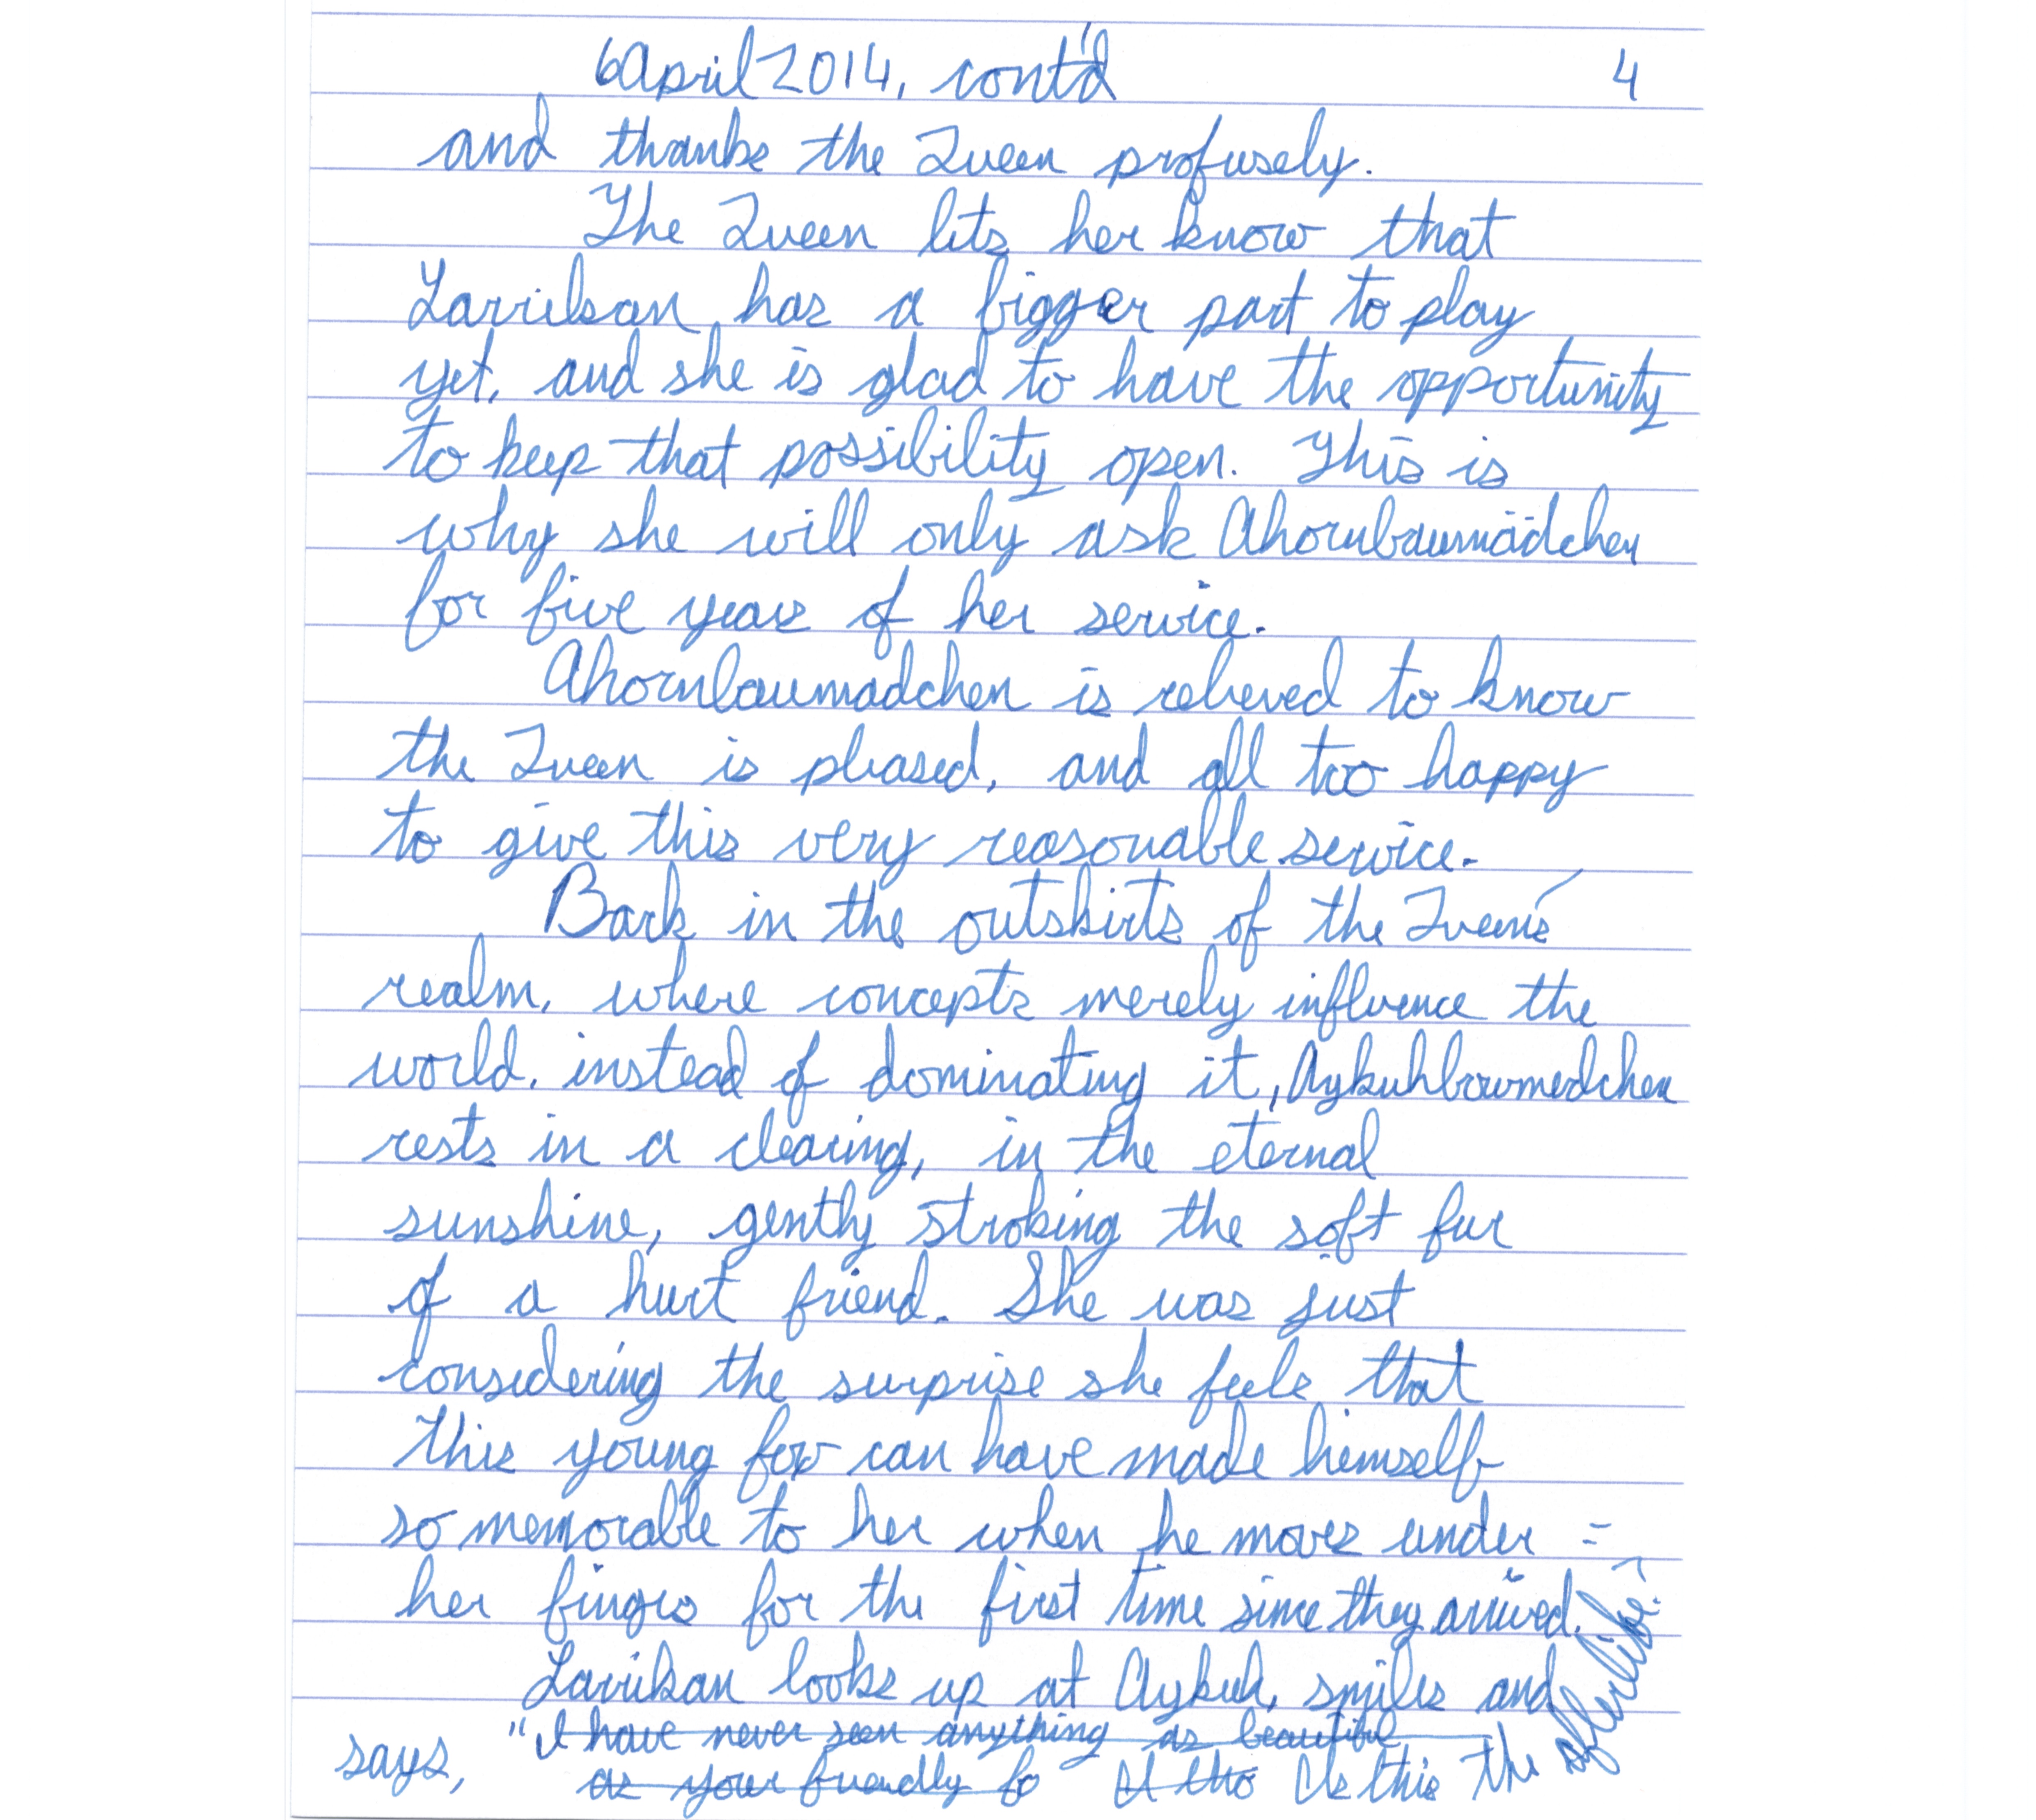 6 April 2014, cont'd 4
and thanks the Queen profusely.
The Queen lets her know that
Larrikan has a bigger part to play
yet, and she is glad to have the opportunity
to keep that possibility open. This is
why she will only ask Ahornbaumädchen
for five years of her service.
Ahornbaumadchen is relieved to know
the Queen is pleased, and all too happy
to give this very reasonable service.
Back in the outskirts of the Queen's
realm, where concepts merely influence the
world, instead of dominating it, Aykuhbowmedchen
rests in a clearing, in the eternal
sunshine, gently stroking the soft fur
of a hurt friend. She was just
considering the surprise she feels that
this young fox can have made himself
so memorable to her when he moves under =
her fingers for the first time since they arrived.
Larrikan looks up at Aykuh, smiles and
says, "I have never seen anything as beautiful
as your friendly fo" Is this the afterlife?"